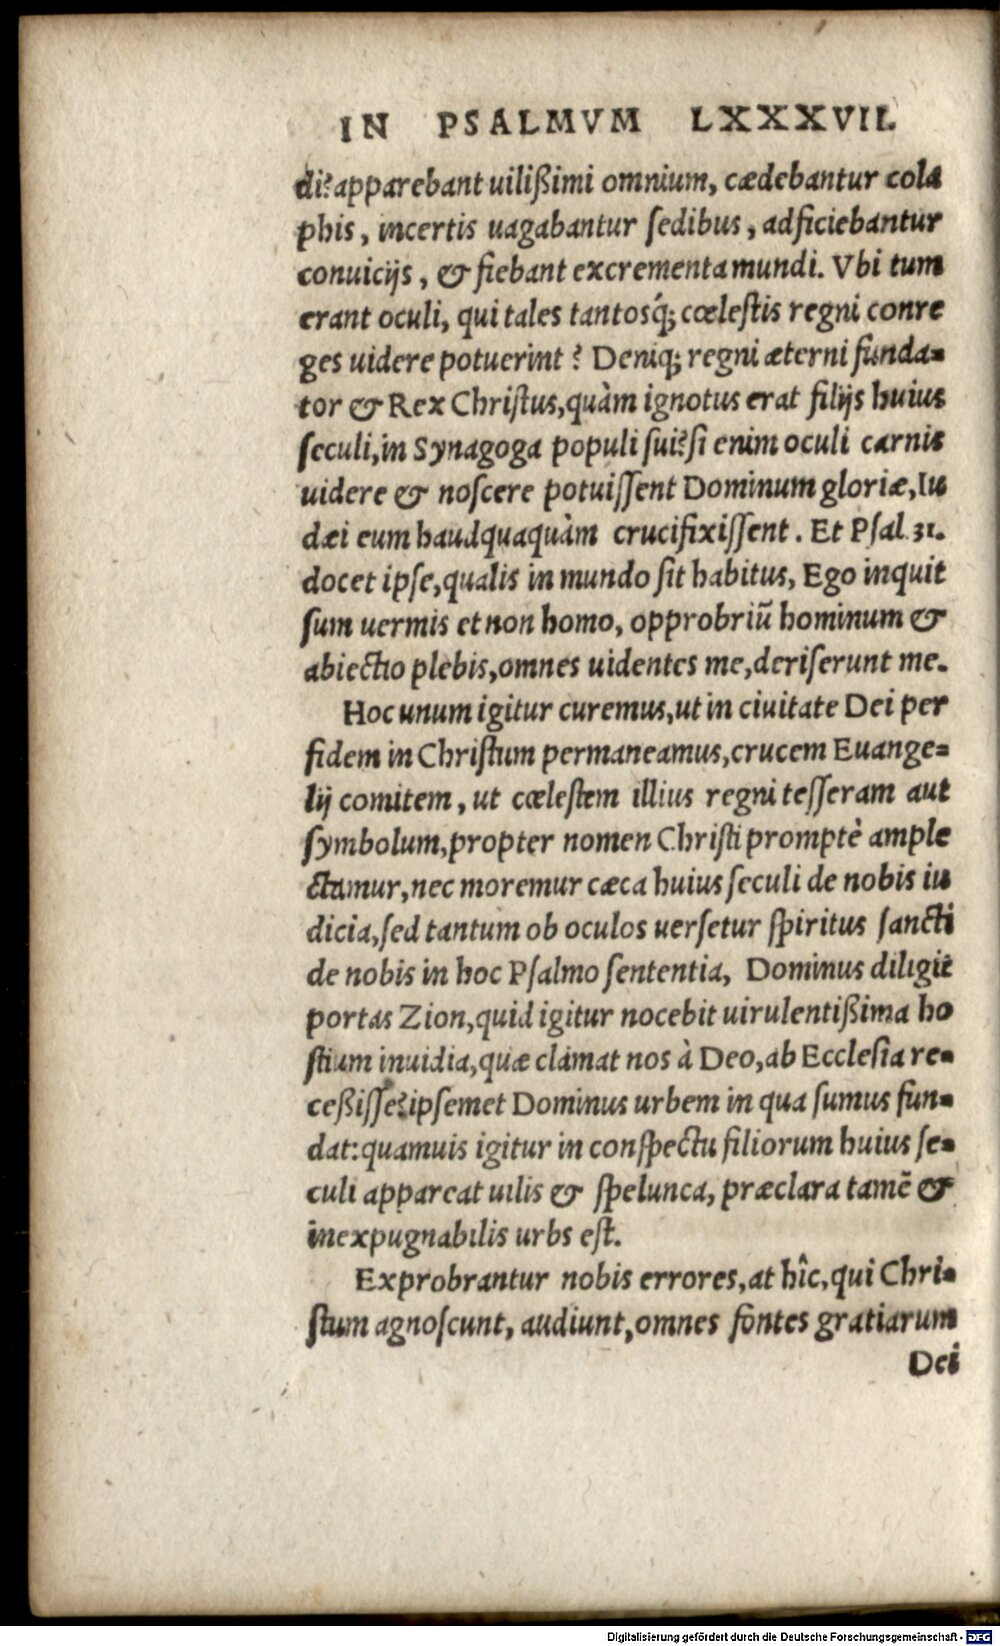 IN PSALMVM LXXXVII.
di? apparebant uilißimi omnium, cædebantur cola
phis, incertis uagabantur ſedibus, adficiebantur
conuicijs, & fiebant excrementa mundi. Vbi tum
erant oculi, qui tales tantosq́; cœleſtis regni conre
ges uidere potuerint? Deniq; regni æterni funda-
tor & Rex Chriſtus, quàm ignotus erat filijs huius
ſeculi, in Synagoga populi ſui? ſi enim oculi carnis
uidere & noſcere potuiſſent Dominum gloriæ, Iu
dæi eum haudquaquàm crucifixiſſent. Et Pſal. 31.
docet ipſe, qualis in mundo ſit habitus, Ego inquit
ſum uermis et non homo, opprobriū hominum &
abiectio plebis, omnes uidentes me, deriſerunt me.
Hoc unum igitur curemus, ut in ciuitate Dei per
fidem in Chriſtum permaneamus, crucem Euange-
lij comitem, ut cœleſtem illius regni teſſeram aut
ſymbolum, propter nomen Chriſti promptè ample
ctamur, nec moremur cæca huius ſeculi de nobis iu
dicia, ſed tantum ob oculos uerſetur ſpiritus ſancti
de nobis in hoc Pſalmo ſententia, Dominus diligit
portas Zion, quid igitur nocebit uirulentißima ho
ſtium inuidia, quæ clamat nos à Deo, ab Eccleſia re-
ceßiſſe? ipſemet Dominus urbem in qua ſumus fun-
dat: quamuis igitur in conſpectu filiorum huius ſe-
culi appareat uilis & ſpelunca, præclara tamē &
inexpugnabilis urbs eſt.
Exprobrantur nobis errores, at hîc, qui Chri-
ſtum agnoſcunt, audiunt, omnes fontes gratiarum
Dei
Digitalisierung gefördert durch die Deutsche Forschungsgemeinschaft - DFG